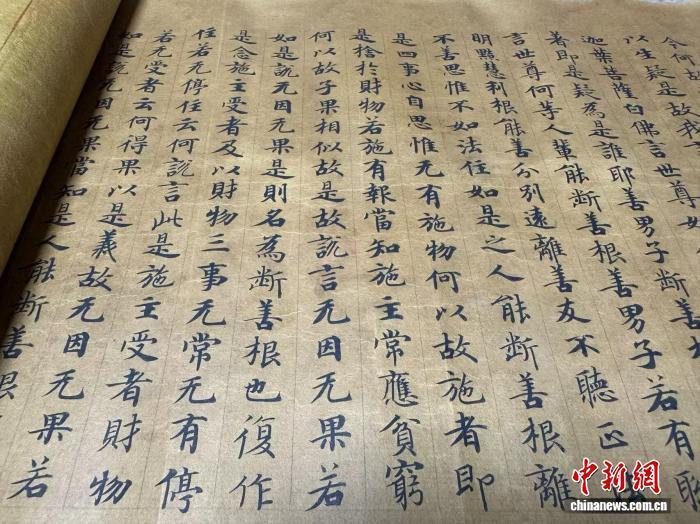 何故
以生疑是故我
迦葉菩薩白佛言世尊如
著即是疑為是誰耶善男子
言世尊何等人輩能断善根善男子若有聡
明黠慧利根能善分別遠離善友不聽正法
不善思惟不如法住如是之人能断善根離
是四事心自思惟无有施物何以故施者即
是捨於財物若施有報當知施主常應貧窮
何以故子果相似故是故說言无因无果若
如是說无因无果是則名為断善根也復作
是念施主受者及以財物三事无常无有停
住若无停住云何說言此是施主受者財物
若无受者云何得果以是義故无因无果若
如是說无因无果當知是人能断善根
中新网
chinanews.com